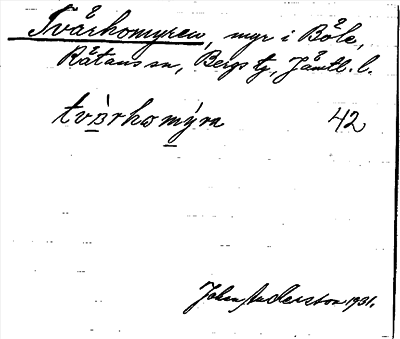 Tvårhomyren, myr i Böle,
Rätans sn, Bergs tg, Jämtl. l.
tvärhomýrn 42
John Andersson 1931.